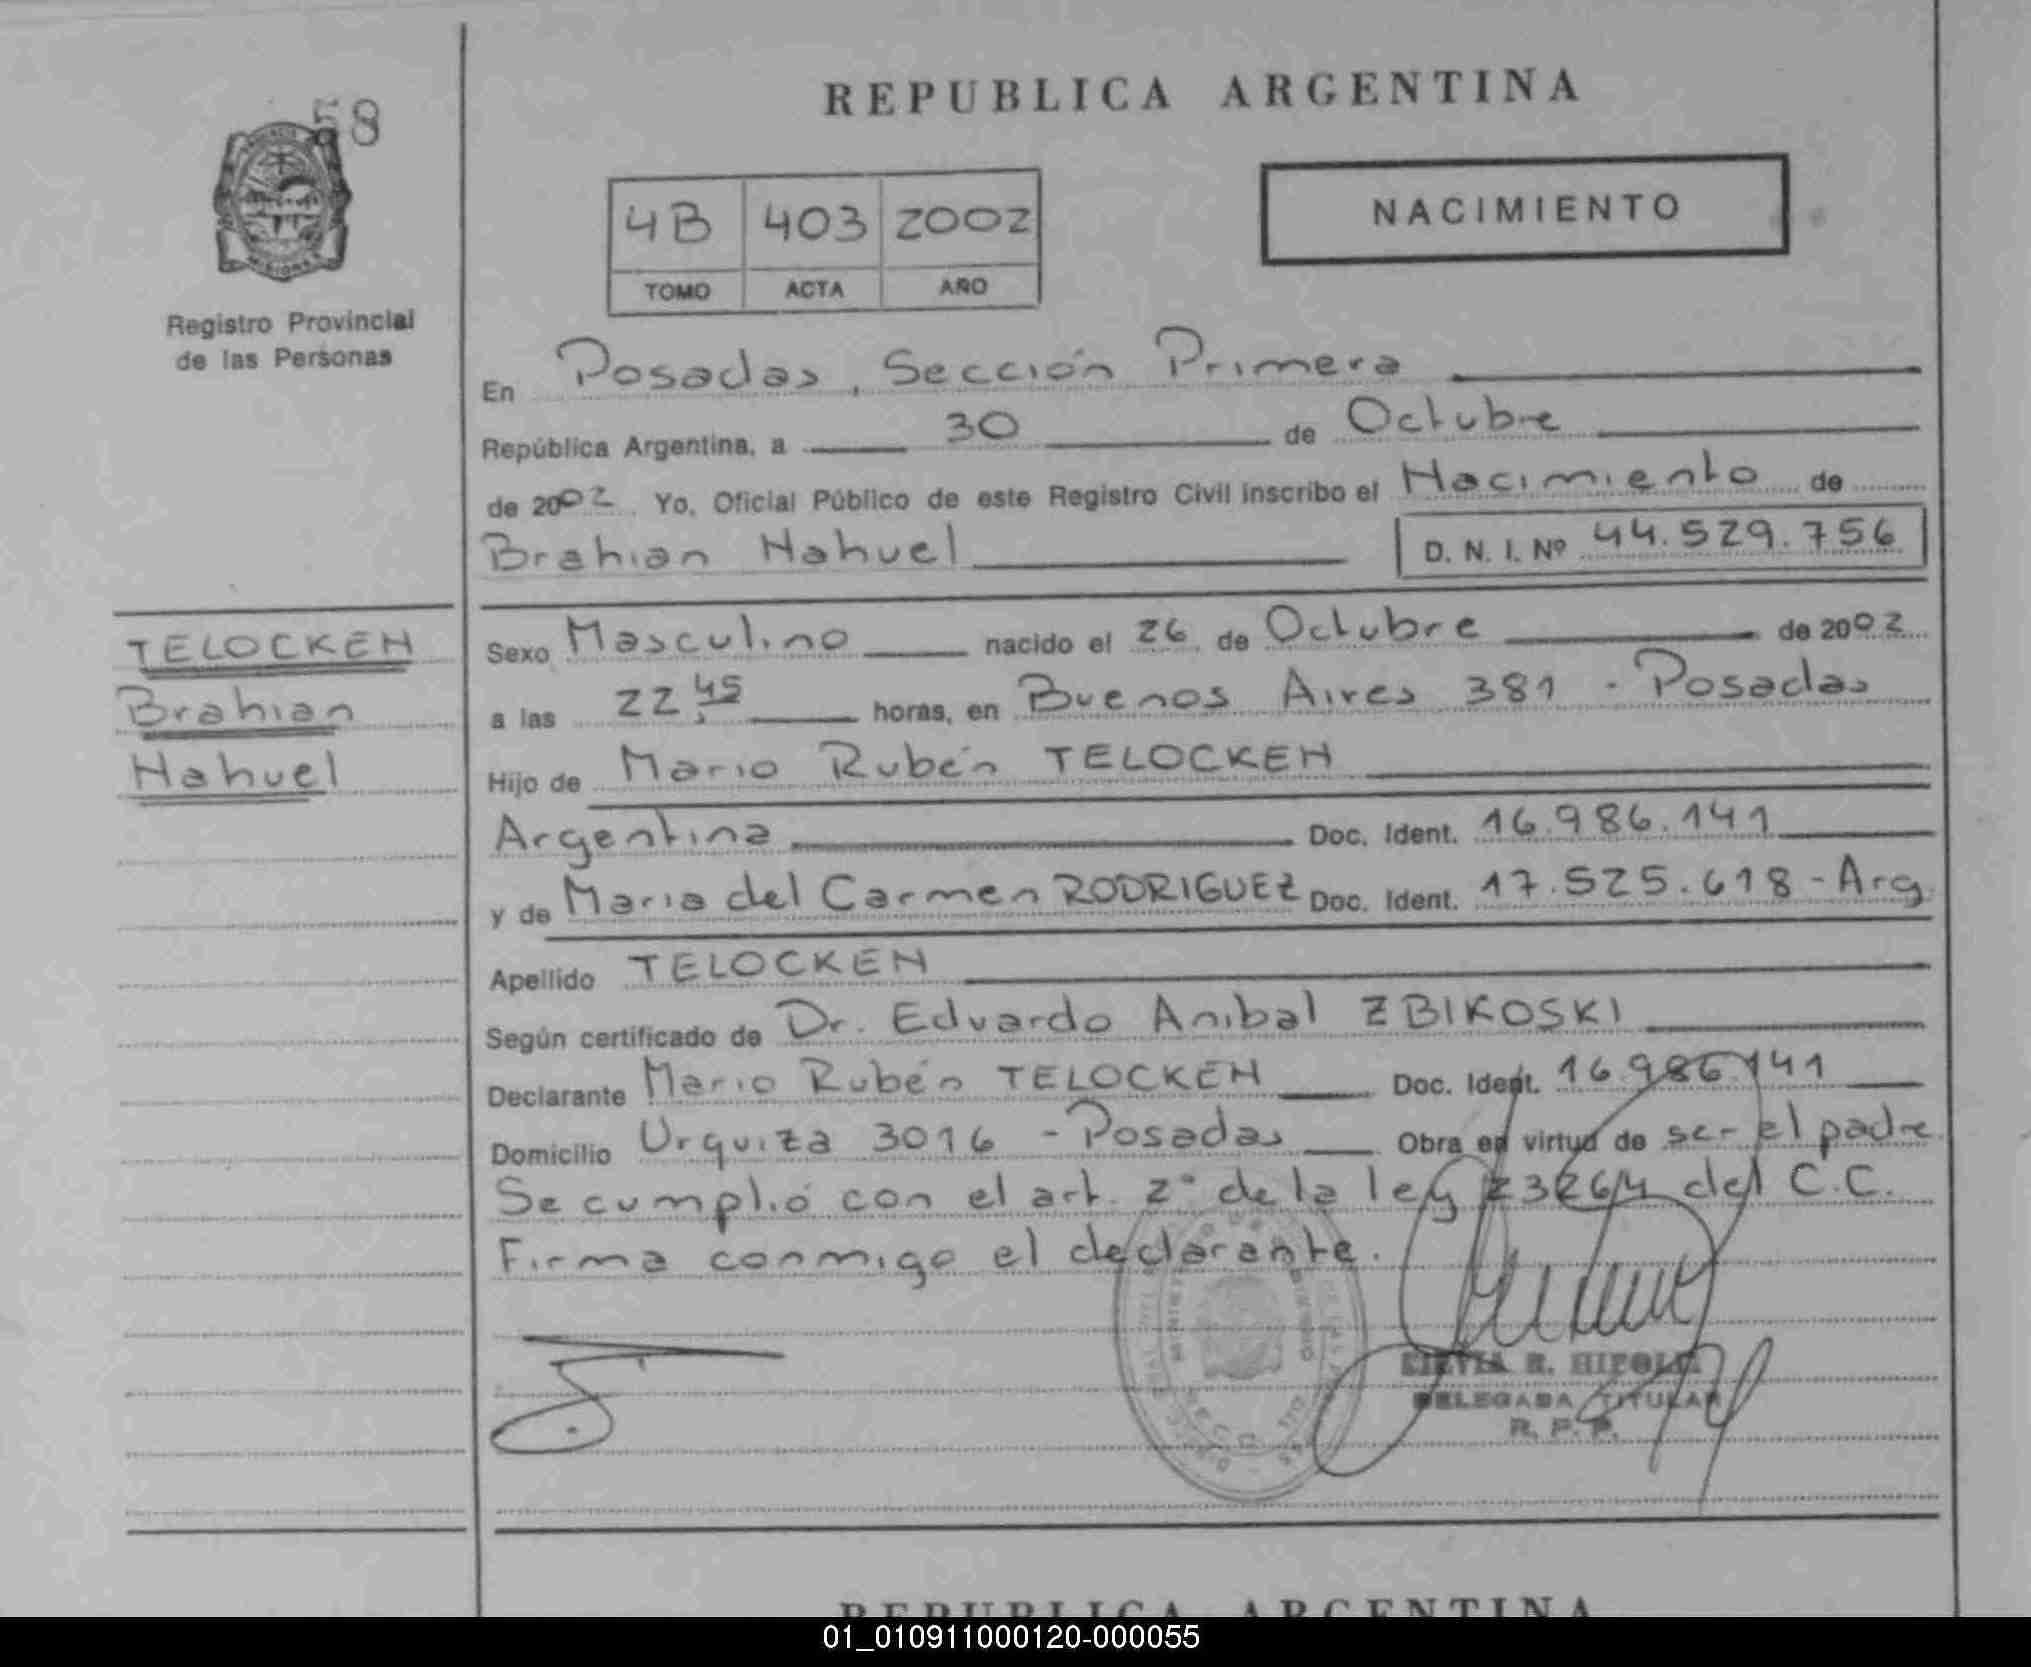 58
MISIONES
Registro Provincial
de las Personas
REPUBLICA ARGENTINA
4B 403 2002
TOMO ACTA AÑO
NACIMIENTO
En Posadas, Sección Primera
República Argentina, a 30 de Octubre
de 2002 Yo, Oficial Público de este Registro Civil inscribo el Nacimiento de
Brahian Nahuel D. N. I. Nº 44.529.756
TELOCKEN
Brahian
Nahuel
Sexo Masculino nacido el 26 de Octubre de 2002
a las 22,45 horas, en Buenos Aires 381 - Posadas
Hijo de Mario Rubén TELOCKEN
Argentina Doc. Ident. 16.986.141
y de Maria del Carmen RODRIGUEZ Doc. Ident. 17.525.618 - Arg.
Apellido TELOCKEN
Según certificado de Dr. Eduardo Anibal ZBIKOSKI
Declarante Mario Rubén TELOCKEN Doc. Ident. 16.986.141
Domicilio Urquiza 3016 - Posadas Obra en virtud de ser el padre
Se cumplió con el art. 2° de la ley 23264 del C.C.
Firma conmigo el declarante.
SILVIA R.
DELEGADA TITULAR
R. P. P.
REPUBLICA ARGENTINA
01_010911000120-000055